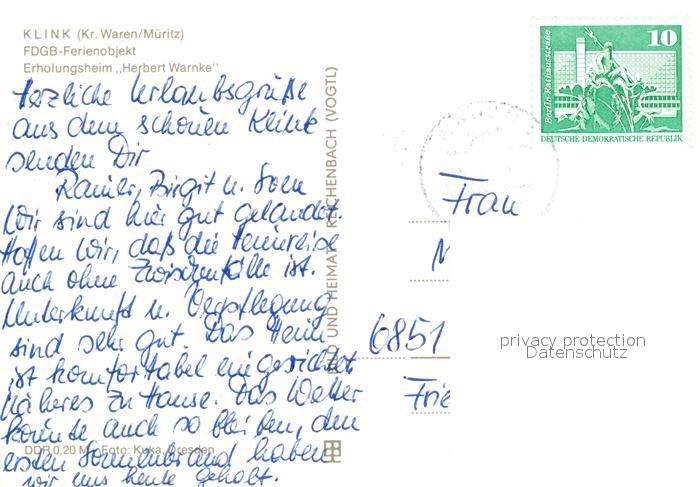 KLINK (Kr. Waren/Müritz)
FDGB-Ferienobjekt
Erholungsheim „Herbert Warnke"
Herzliche Urlaubsgrüße
aus dem schönen Klink
senden Dir
Rainer, Birgit u. Sven
Wir sind hier gut gelandet.
Hoffen wir, daß die
auch ohne Zwischenfälle ist.
Unterkunft u. Verpflegung
sind sehr gut. Das Heim
ist komfortabel eingerichtet
Näheres zu Hause. Das Wetter
könnte auch so bleiben, den
ersten Sonnenbrand haben
wir uns heute geholt.
DDR 0,20 M Foto: Kuka, Dresden
BILD UND HEIMAT REICHENBACH (VOGTL)
10
Berlin-Rathausstraße
DEUTSCHE DEMOKRATISCHE REPUBLIK
Frau
M
6851
Frie
privacy protection
Datenschutz